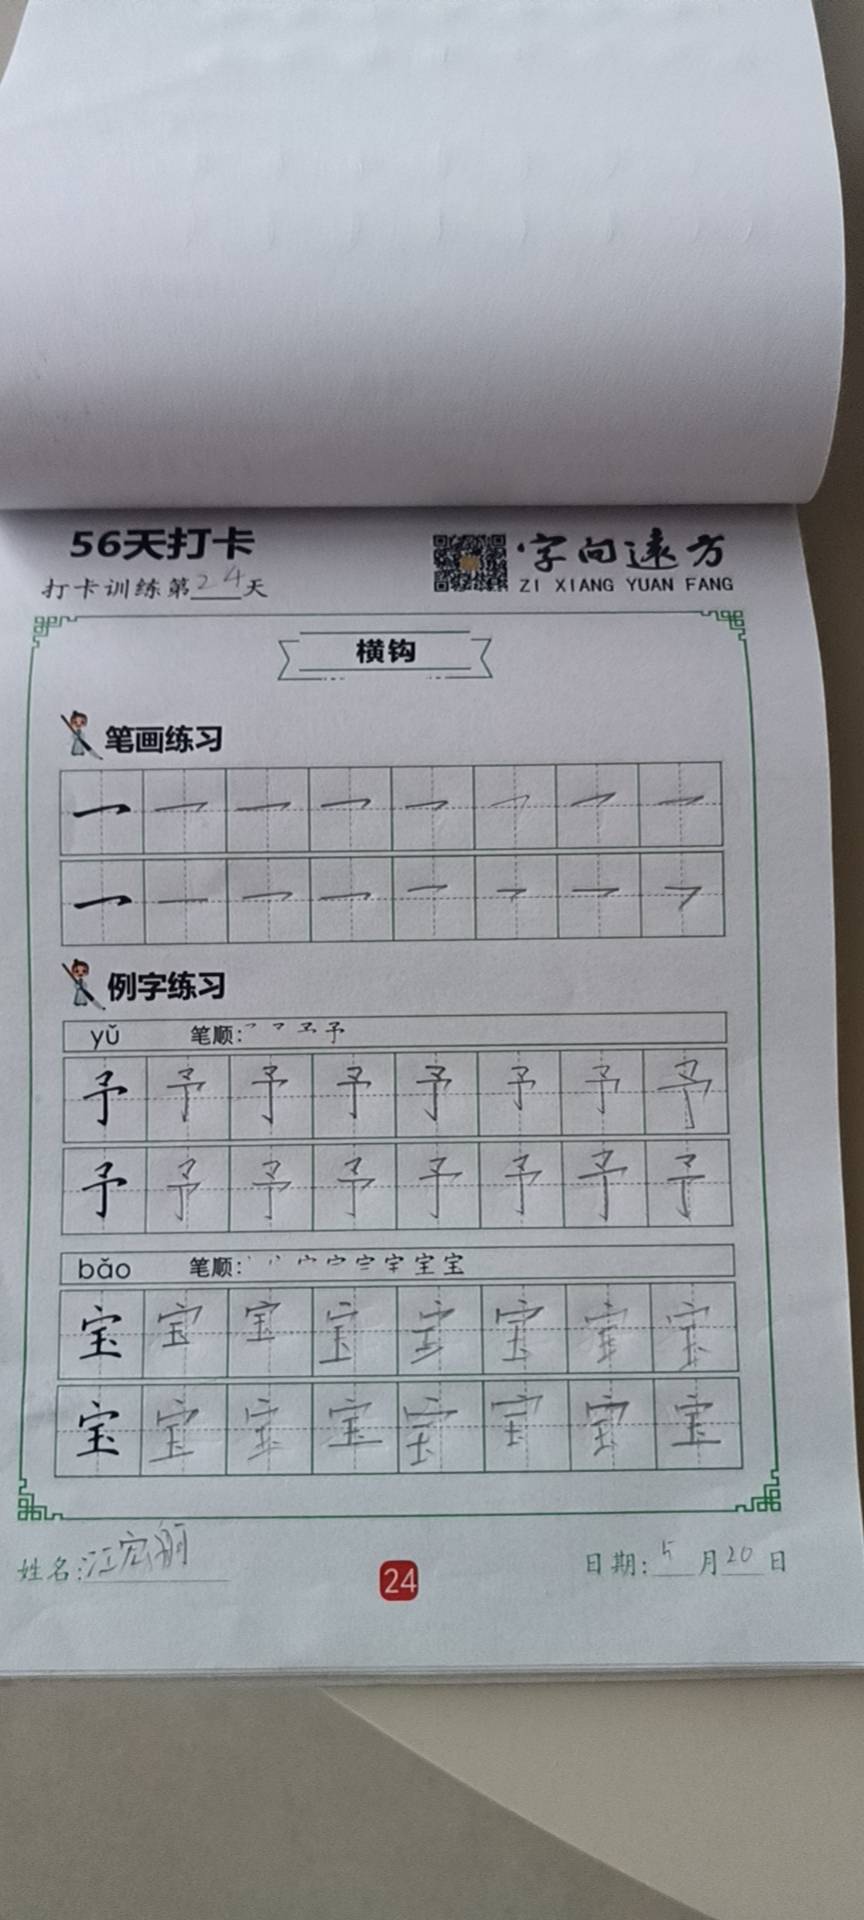 56天打卡
字向远方
ZI XIANG YUAN FANG
打卡训练第24天
横钩
笔画练习
例字练习
yǔ 笔顺: 乛 予
予 予 予 予 予 予 予 予
予 予 予 予 予 予 予 予
bǎo 笔顺: 丶 宀 宝 宝
宝 宝 宝 宝 宝 宝 宝 宝
宝 宝 宝 宝 宝 宝 宝 宝
姓名:江宏丽
24
日期:5月20日